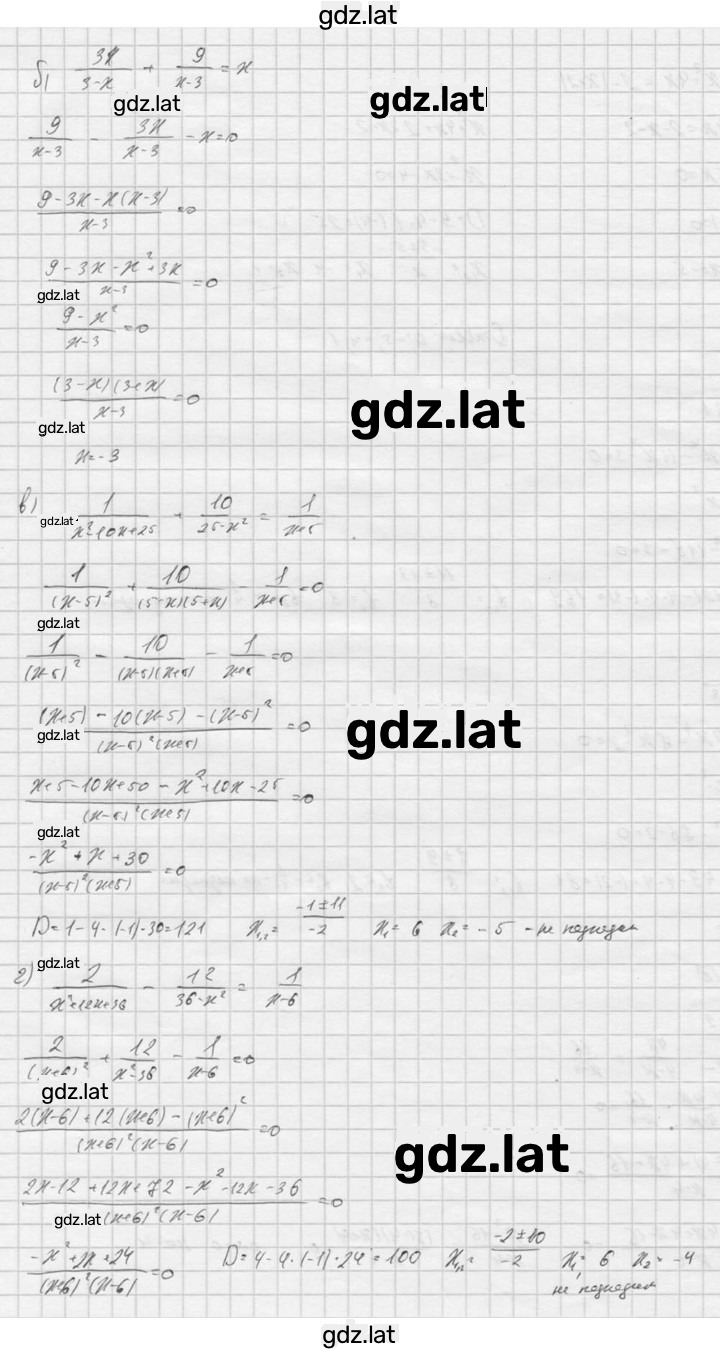 gdz.lat
б) 3x/(3-x) + 9/(x-3) = x
gdz.lat gdz.lat
9/(x-3) - 3x/(x-3) - x = 0
(9-3x-x(x-3))/(x-3) = 0
(9-3x-x²+3x)/(x-3) = 0
gdz.lat
(9-x²)/(x-3) = 0
((3-x)(3+x))/(x-3) = 0
gdz.lat
gdz.lat
x = -3
в) 1/(x²-10x+25) + 10/(25-x²) = 1/(x+5)
gdz.lat
1/(x-5)² + 10/((5-x)(5+x)) - 1/(x+5) = 0
gdz.lat
1/(x-5)² - 10/((x-5)(x+5)) - 1/(x+5) = 0
((x+5) - 10(x-5) - (x-5)²)/((x-5)²(x+5)) = 0
gdz.lat
gdz.lat
(x+5-10x+50-x²+10x-25)/((x-5)²(x+5)) = 0
gdz.lat
(-x²+x+30)/((x-5)²(x+5)) = 0
D = 1-4·(-1)·30 = 121 x₁,₂ = (-1±11)/-2 x₁ = 6 x₂ = -5 - не подходит
gdz.lat
г) 2/(x²+12x+36) - 12/(36-x²) = 1/(x-6)
2/(x+6)² + 12/(x²-36) - 1/(x-6) = 0
gdz.lat
(2(x-6)+12(x+6)-(x+6)²)/((x+6)²(x-6)) = 0
gdz.lat
(2x-12+12x+72-x²-12x-36)/((x+6)²(x-6)) = 0
gdz.lat
(-x²+2x+24)/((x+6)²(x-6)) = 0 D = 4-4·(-1)·24 = 100 x₁,₂ = (-2±10)/-2 x₁ = 6 x₂ = -4
не подходит
gdz.lat